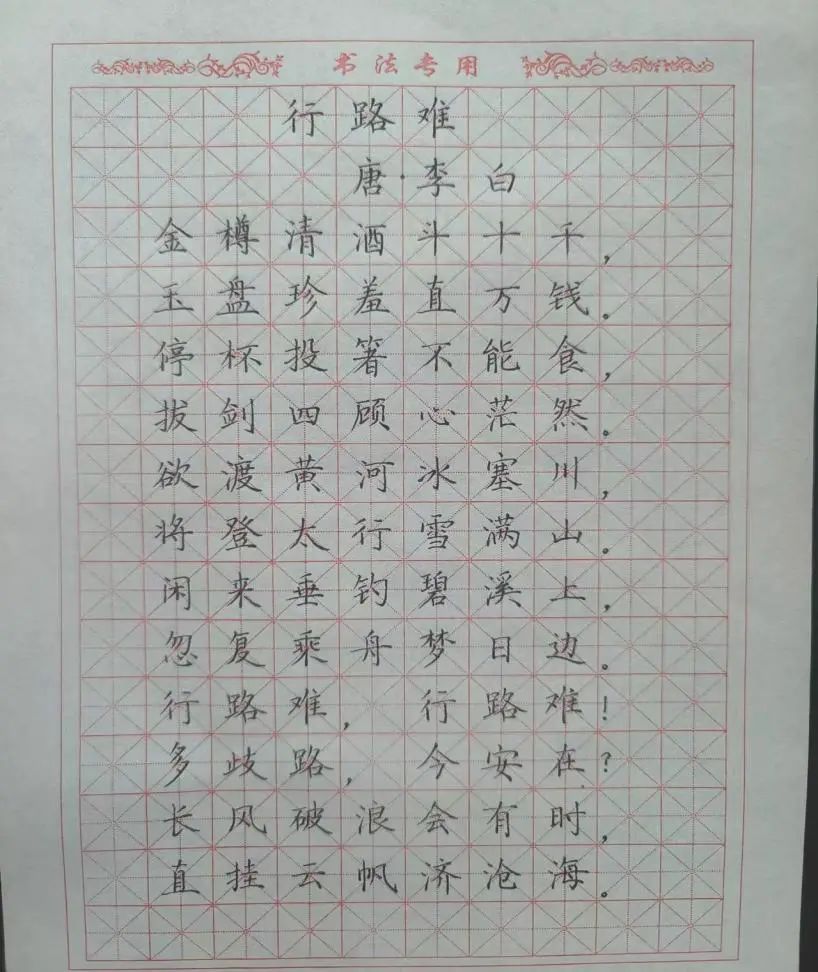 书法专用
行路难
唐·李白
金樽清酒斗十千,
玉盘珍羞直万钱。
停杯投箸不能食,
拔剑四顾心茫然。
欲渡黄河冰塞川,
将登太行雪满山。
闲来垂钓碧溪上,
忽复乘舟梦日边。
行路难,行路难!
多歧路,今安在?
长风破浪会有时,
直挂云帆济沧海。